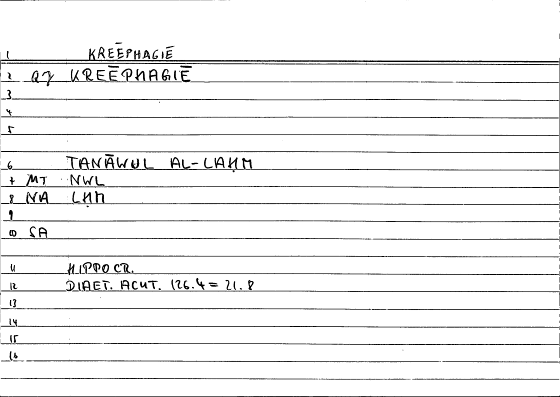 1 KREĒPHAGIĒ
2 QY KREĒPHAGIĒ
3
4
5
6 TANĀWUL AL-LAḤM
7 MT NWL
8 NA LḤM
9
10 SA
11 HIPPOCR.
12 DIAET. ACUT. 126.4 = 21.8
13
14
15
16